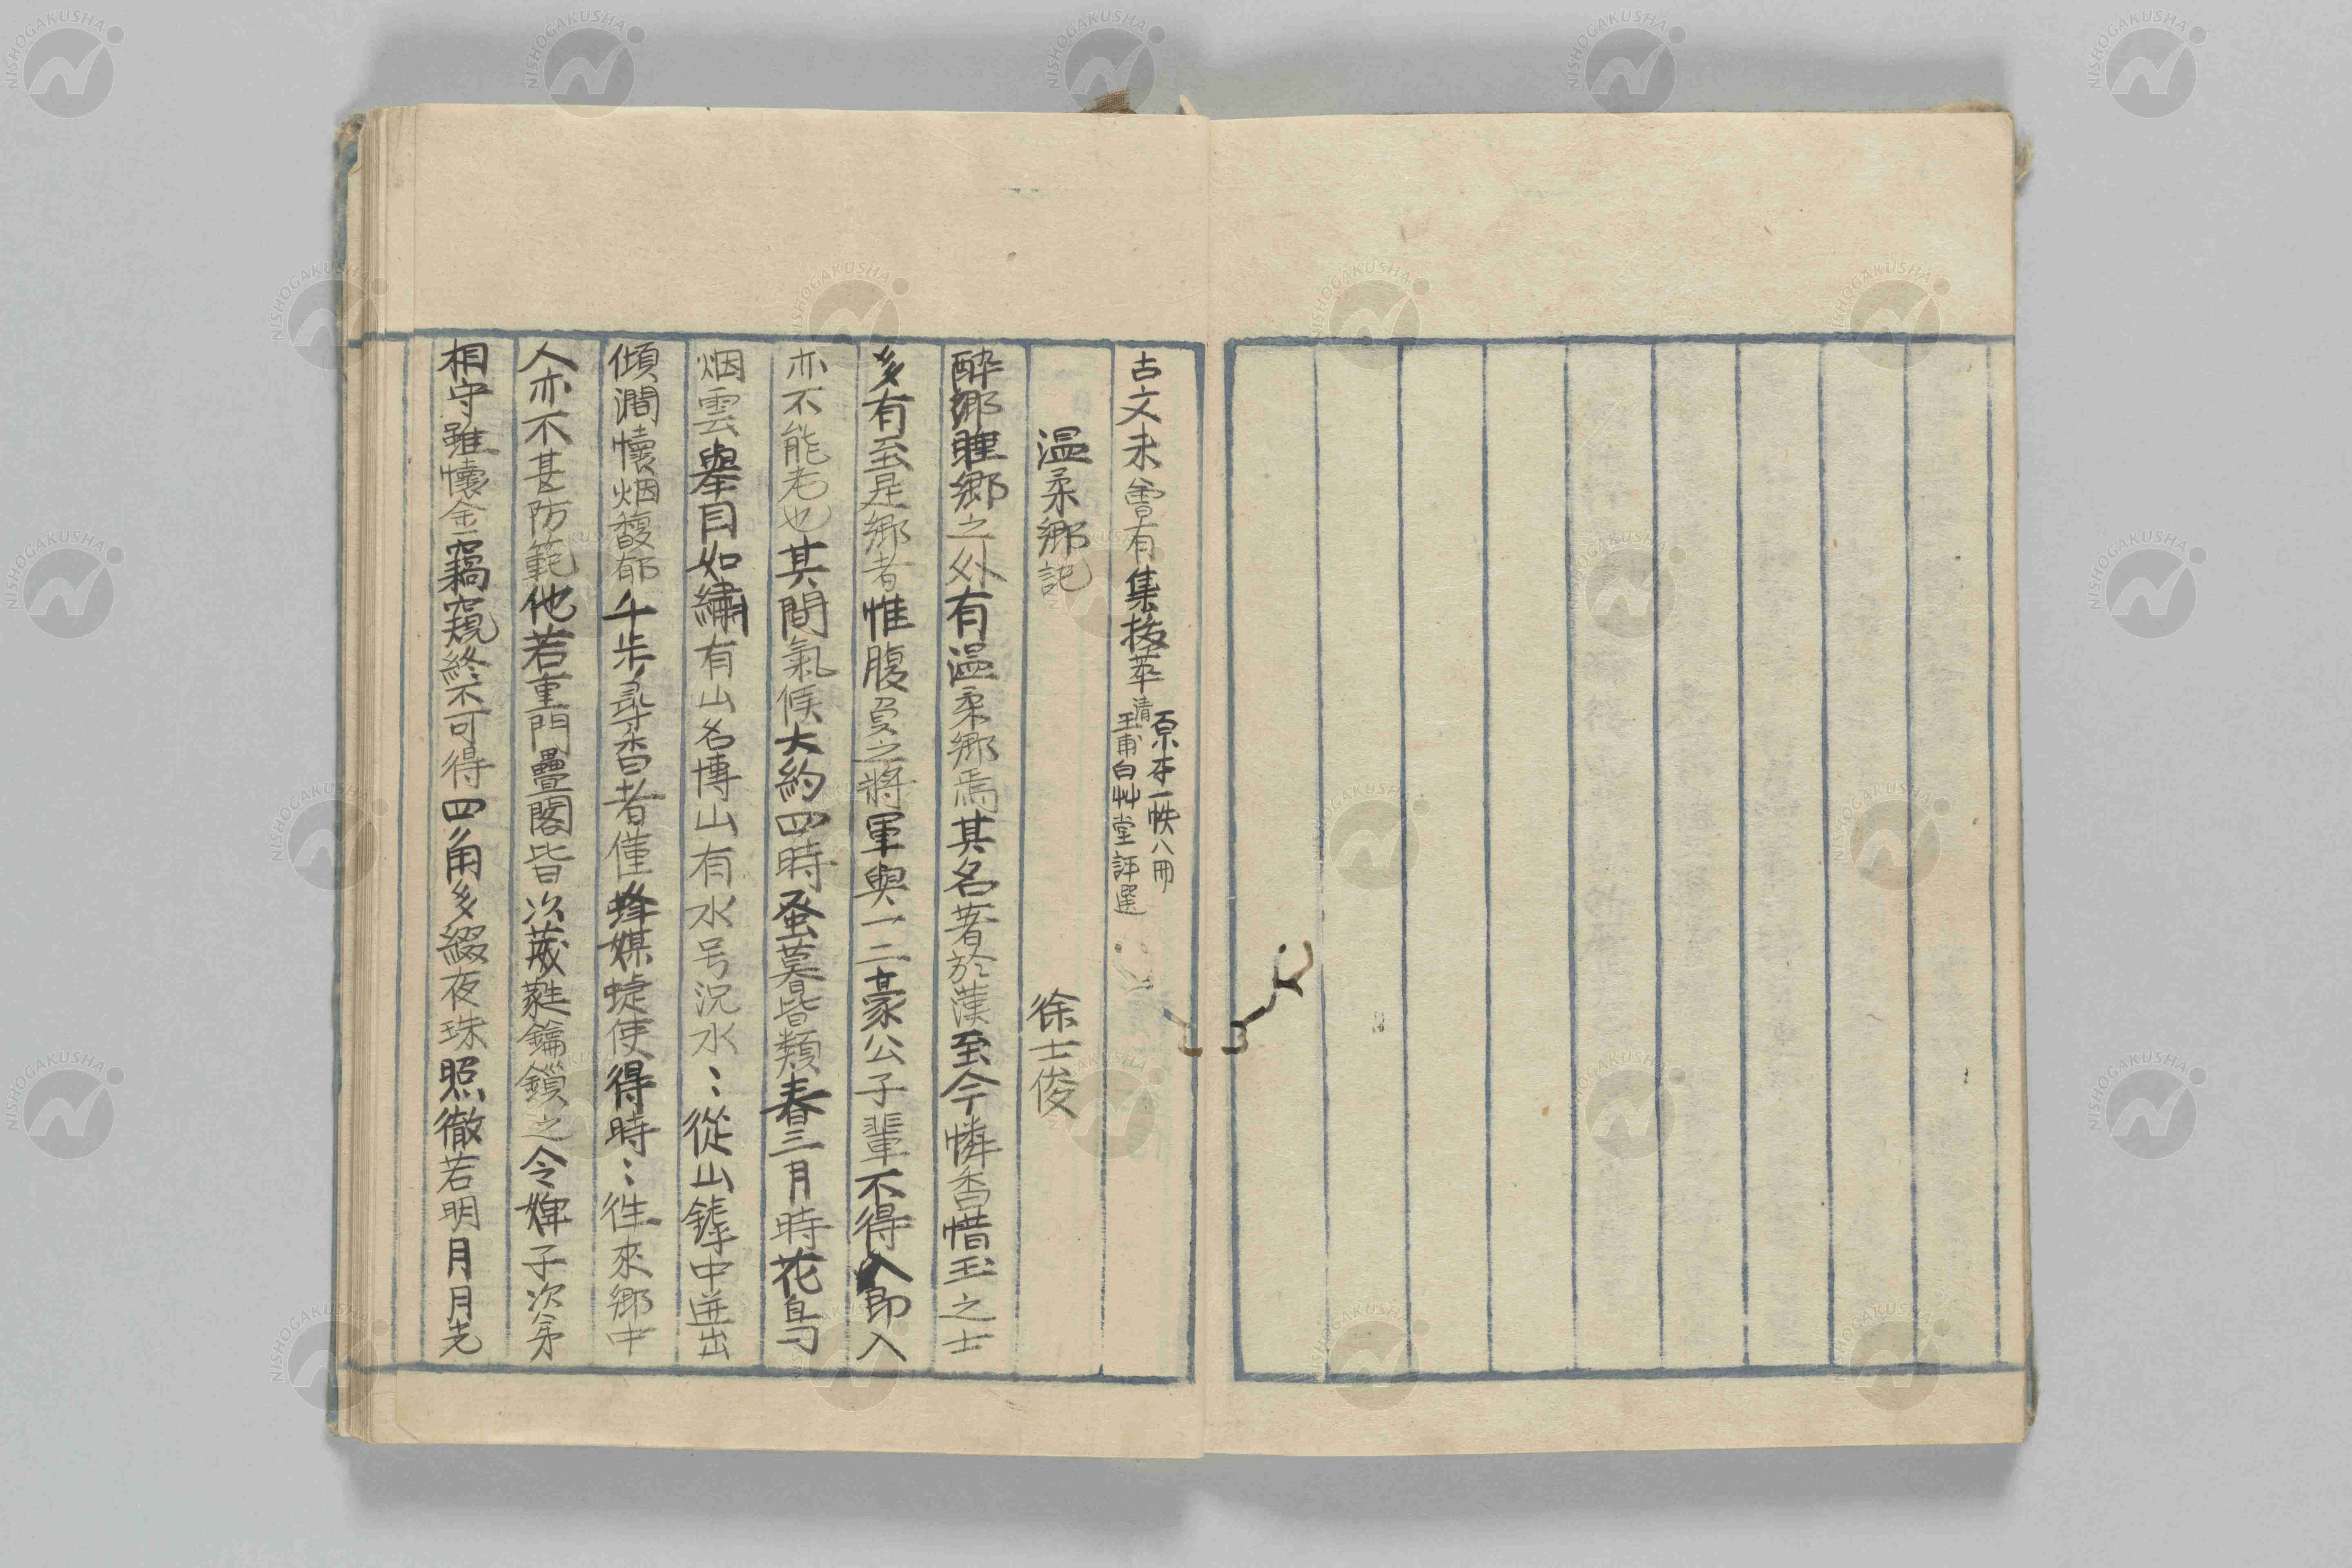 古文未曾有集抜萃 原本一帙八冊
清王甫白艸堂評選
温柔郷記 徐士俊
酔郷睡郷之外有温柔郷焉其名著於漢至今憐香惜玉之士
多有至是郷者惟腹負之將軍與一二豪公子輩不得入即入
亦不能老也其間氣候大約四時蚤暮皆類春三月時花鳥
烟雲舉目如繡有山名博山有水号況水〻從山鋒中迸出
傾澗懐烟馥郁千歩尋香者僅蜂媒蜨使得時〻往來郷中
人亦不甚防範他若重門疊閣皆次葳蕤鑰鎖之令婢子次第
相守雖懐金竊窺終不可得四角多綴夜珠照徹若明月月光
NISHOGAKUSHA